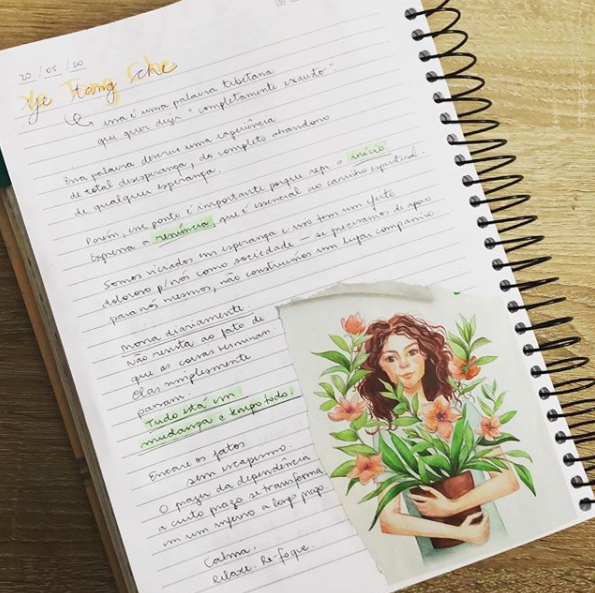 20 / 05 / 20
Ye Tang Che
essa é uma palavra tibetana
que quer dizer "completamente exausto".
Essa palavra descreve uma experiência
de total desesperança, do completo abandono
de qualquer esperança.
Porém, esse ponto é importante porque rep. o início
Expressa a renúncia, que é essencial ao caminho espiritual.
Somos viciados em esperança e isso tem um efeito
doloroso p/ nós como sociedade – se precisamos de apoio
para nós mesmos, não construímos um lugar compassivo.
Morra diariamente
não resista ao fato de
que as coisas terminam
Elas simplesmente
passam.
Tudo está em
mudança o tempo todo.
Encare os fatos
sem escapismo.
O prazer da dependência
a curto prazo se transforma
em um inferno a longo prazo.
Calma.
Relaxe. Re-foque.